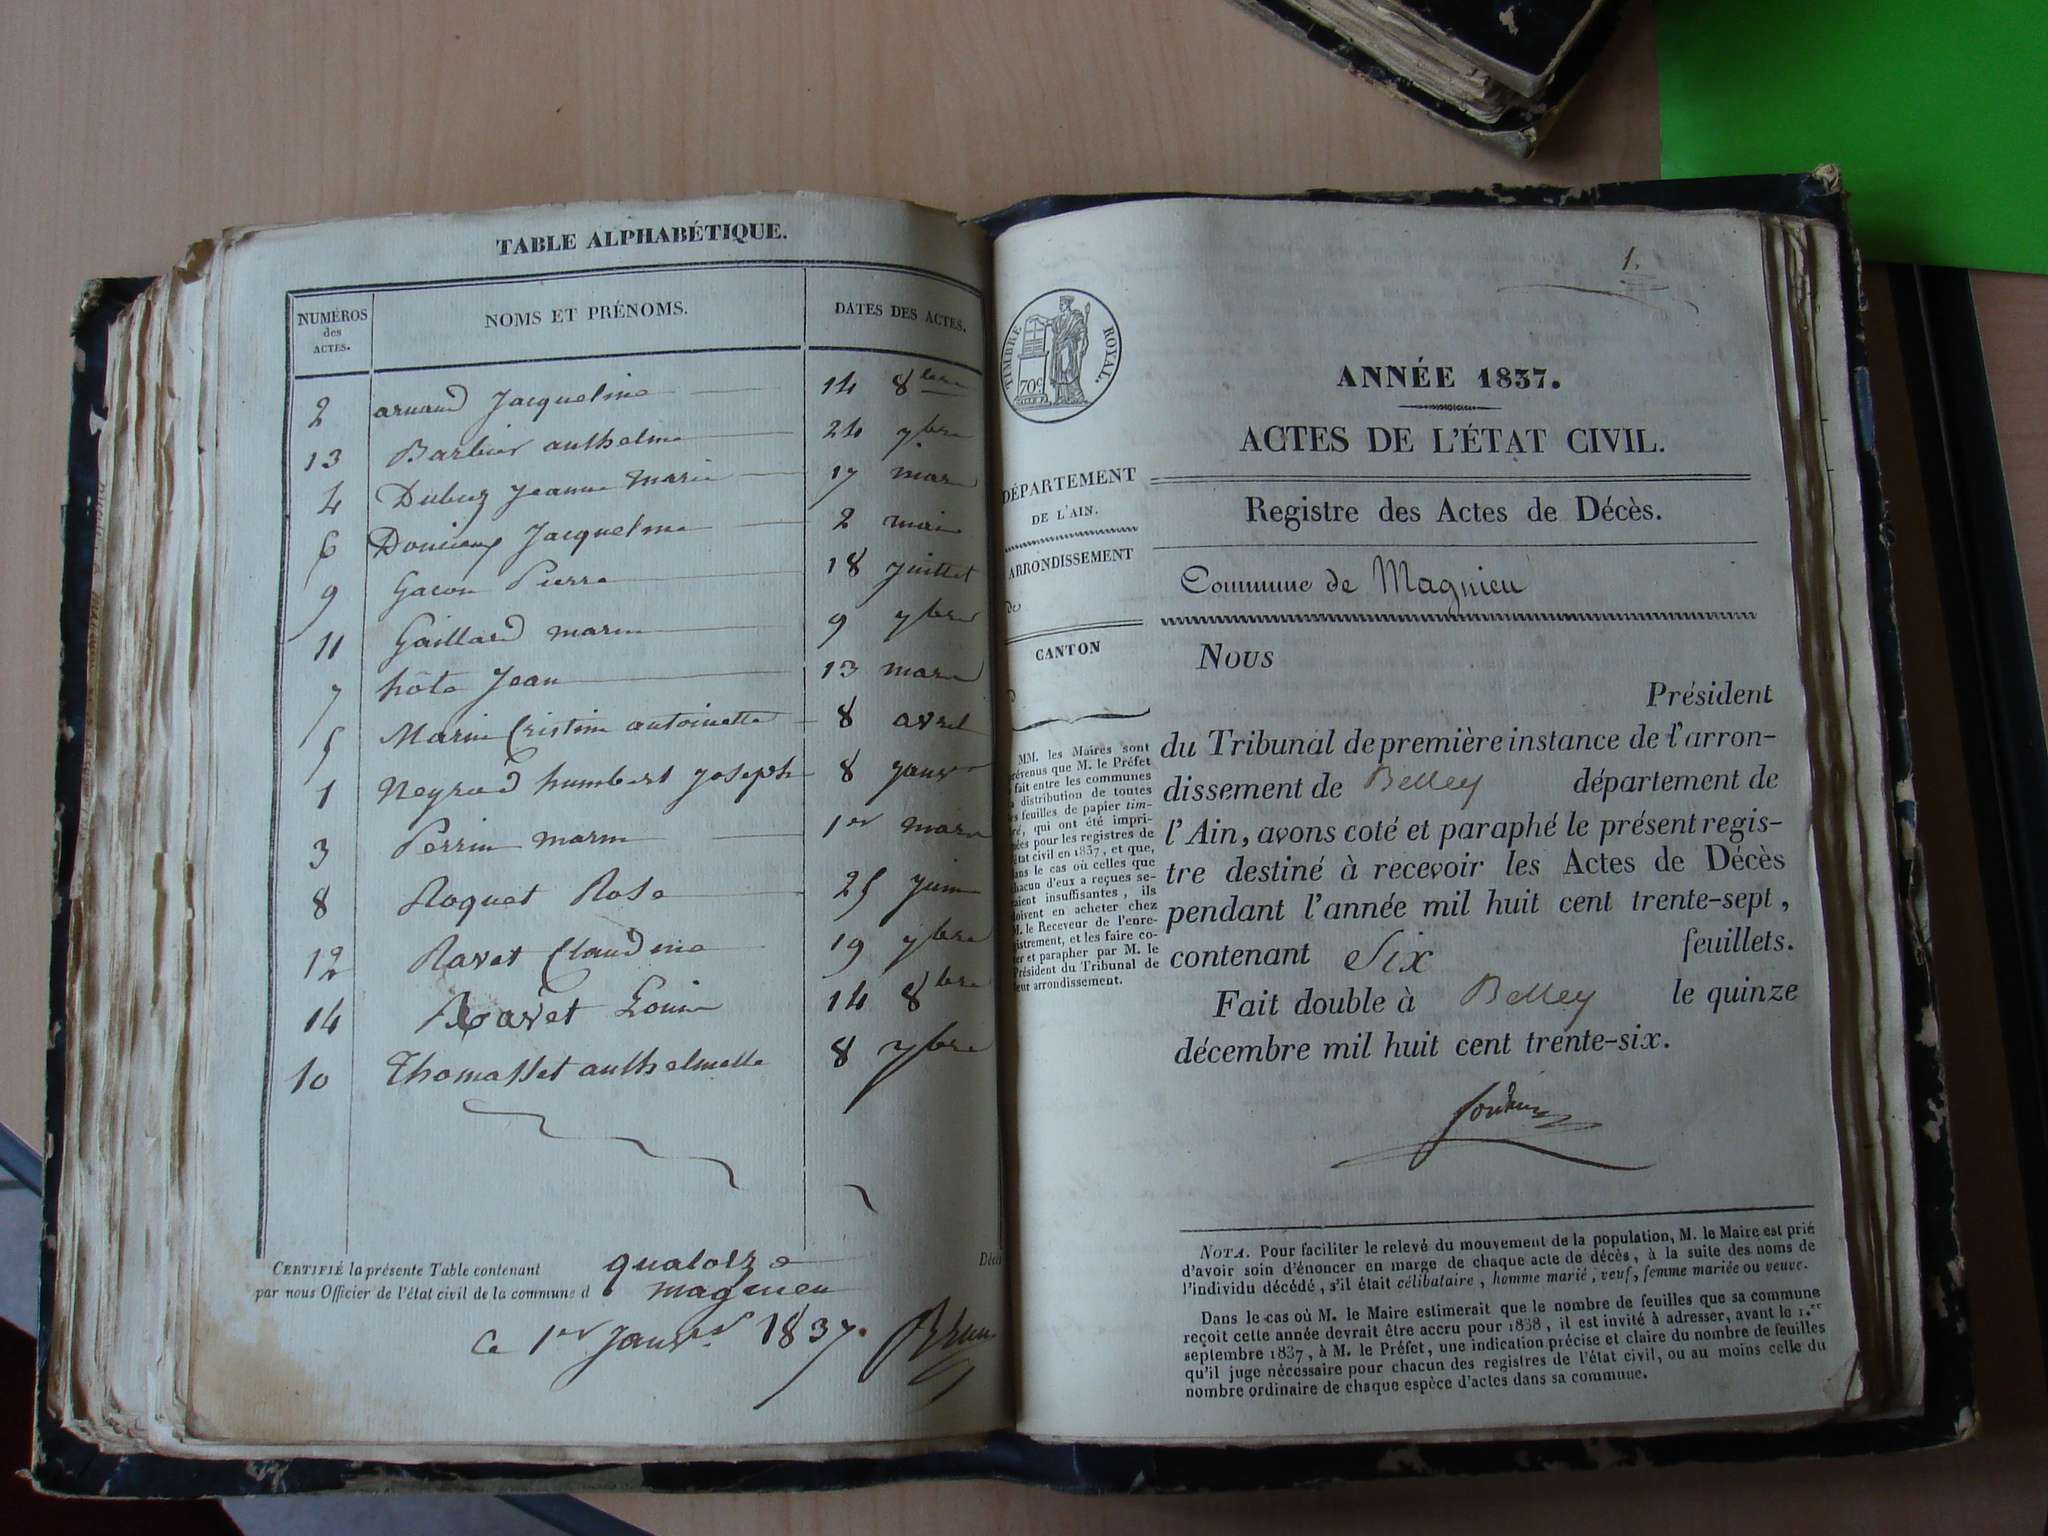 TABLE ALPHABÉTIQUE.
NUMÉROS des ACTES. NOMS ET PRÉNOMS. DATES DES ACTES.
2 arnaud Jacqueline 14 8bre
13 Barbier anthelme 24 7bre
4 Jeanne marie 17 mars
6 Jacqueline 2
9 Gacon Pierre 18 Juillet
11 Gaillard marie 9 7bre
7 hôte Jean 13 mars
5 Marin Cristine antoinette 8 avril
1 Neyrod humbert Joseph 8 Janvr
3 Perrin marin 1er mars
8 Roquet Rose 25 Juin
12 Ravet Claudine 19 7bre
14 Ravet Louis 14 8bre
10 Thomasset anthelmette 8 7bre
CERTIFIÉ la présente Table contenant quatorze Décè
par nous Officier de l'état civil de la commune d magnieu
Ce 1er Janvr 1837.
1.
TIMBRE ROYAL.
70c
ANNÉE 1837.
ACTES DE L'ÉTAT CIVIL.
Registre des Actes de Décès.
Commune de Magnieu
DÉPARTEMENT
DE L'AIN.
ARRONDISSEMENT
de
CANTON
MM. les Maires sont
prévenus que M. le Préfet
fait entre les communes
la distribution de toutes
les feuilles de papier tim-
bré, qui ont été impri-
mées pour les registres de
l'état civil en 1837, et que,
dans le cas où celles que
chacun d'eux a reçues se-
raient insuffisantes, ils
doivent en acheter chez
M. le Receveur de l'enre-
gistrement, et les faire co-
ter et parapher par M. le
Président du Tribunal de
leur arrondissement.
Nous
Président
du Tribunal de première instance de l'arron-
dissement de Belley département de
l'Ain, avons coté et paraphé le présent regis-
tre destiné à recevoir les Actes de Décès
pendant l'année mil huit cent trente-sept,
contenant Six feuillets.
Fait double à Belley le quinze
décembre mil huit cent trente-six.
NOTA. Pour faciliter le relevé du mouvement de la population, M. le Maire est prié
d'avoir soin d'énoncer en marge de chaque acte de décès, à la suite des noms de
l'individu décédé, s'il était célibataire, homme marié, veuf, femme mariée ou veuve.
Dans le cas où M. le Maire estimerait que le nombre de feuilles que sa commune
reçoit cette année devrait être accru pour 1838, il est invité à adresser, avant le 1.er
septembre 1837, à M. le Préfet, une indication précise et claire du nombre de feuilles
qu'il juge nécessaire pour chacun des registres de l'état civil, ou au moins celle du
nombre ordinaire de chaque espèce d'actes dans sa commune.